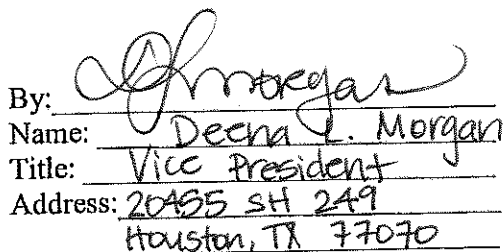 By: DLMorgan
Name: Deena L. Morgan
Title: Vice President
Address: 20455 SH 249
Houston, TX 77070